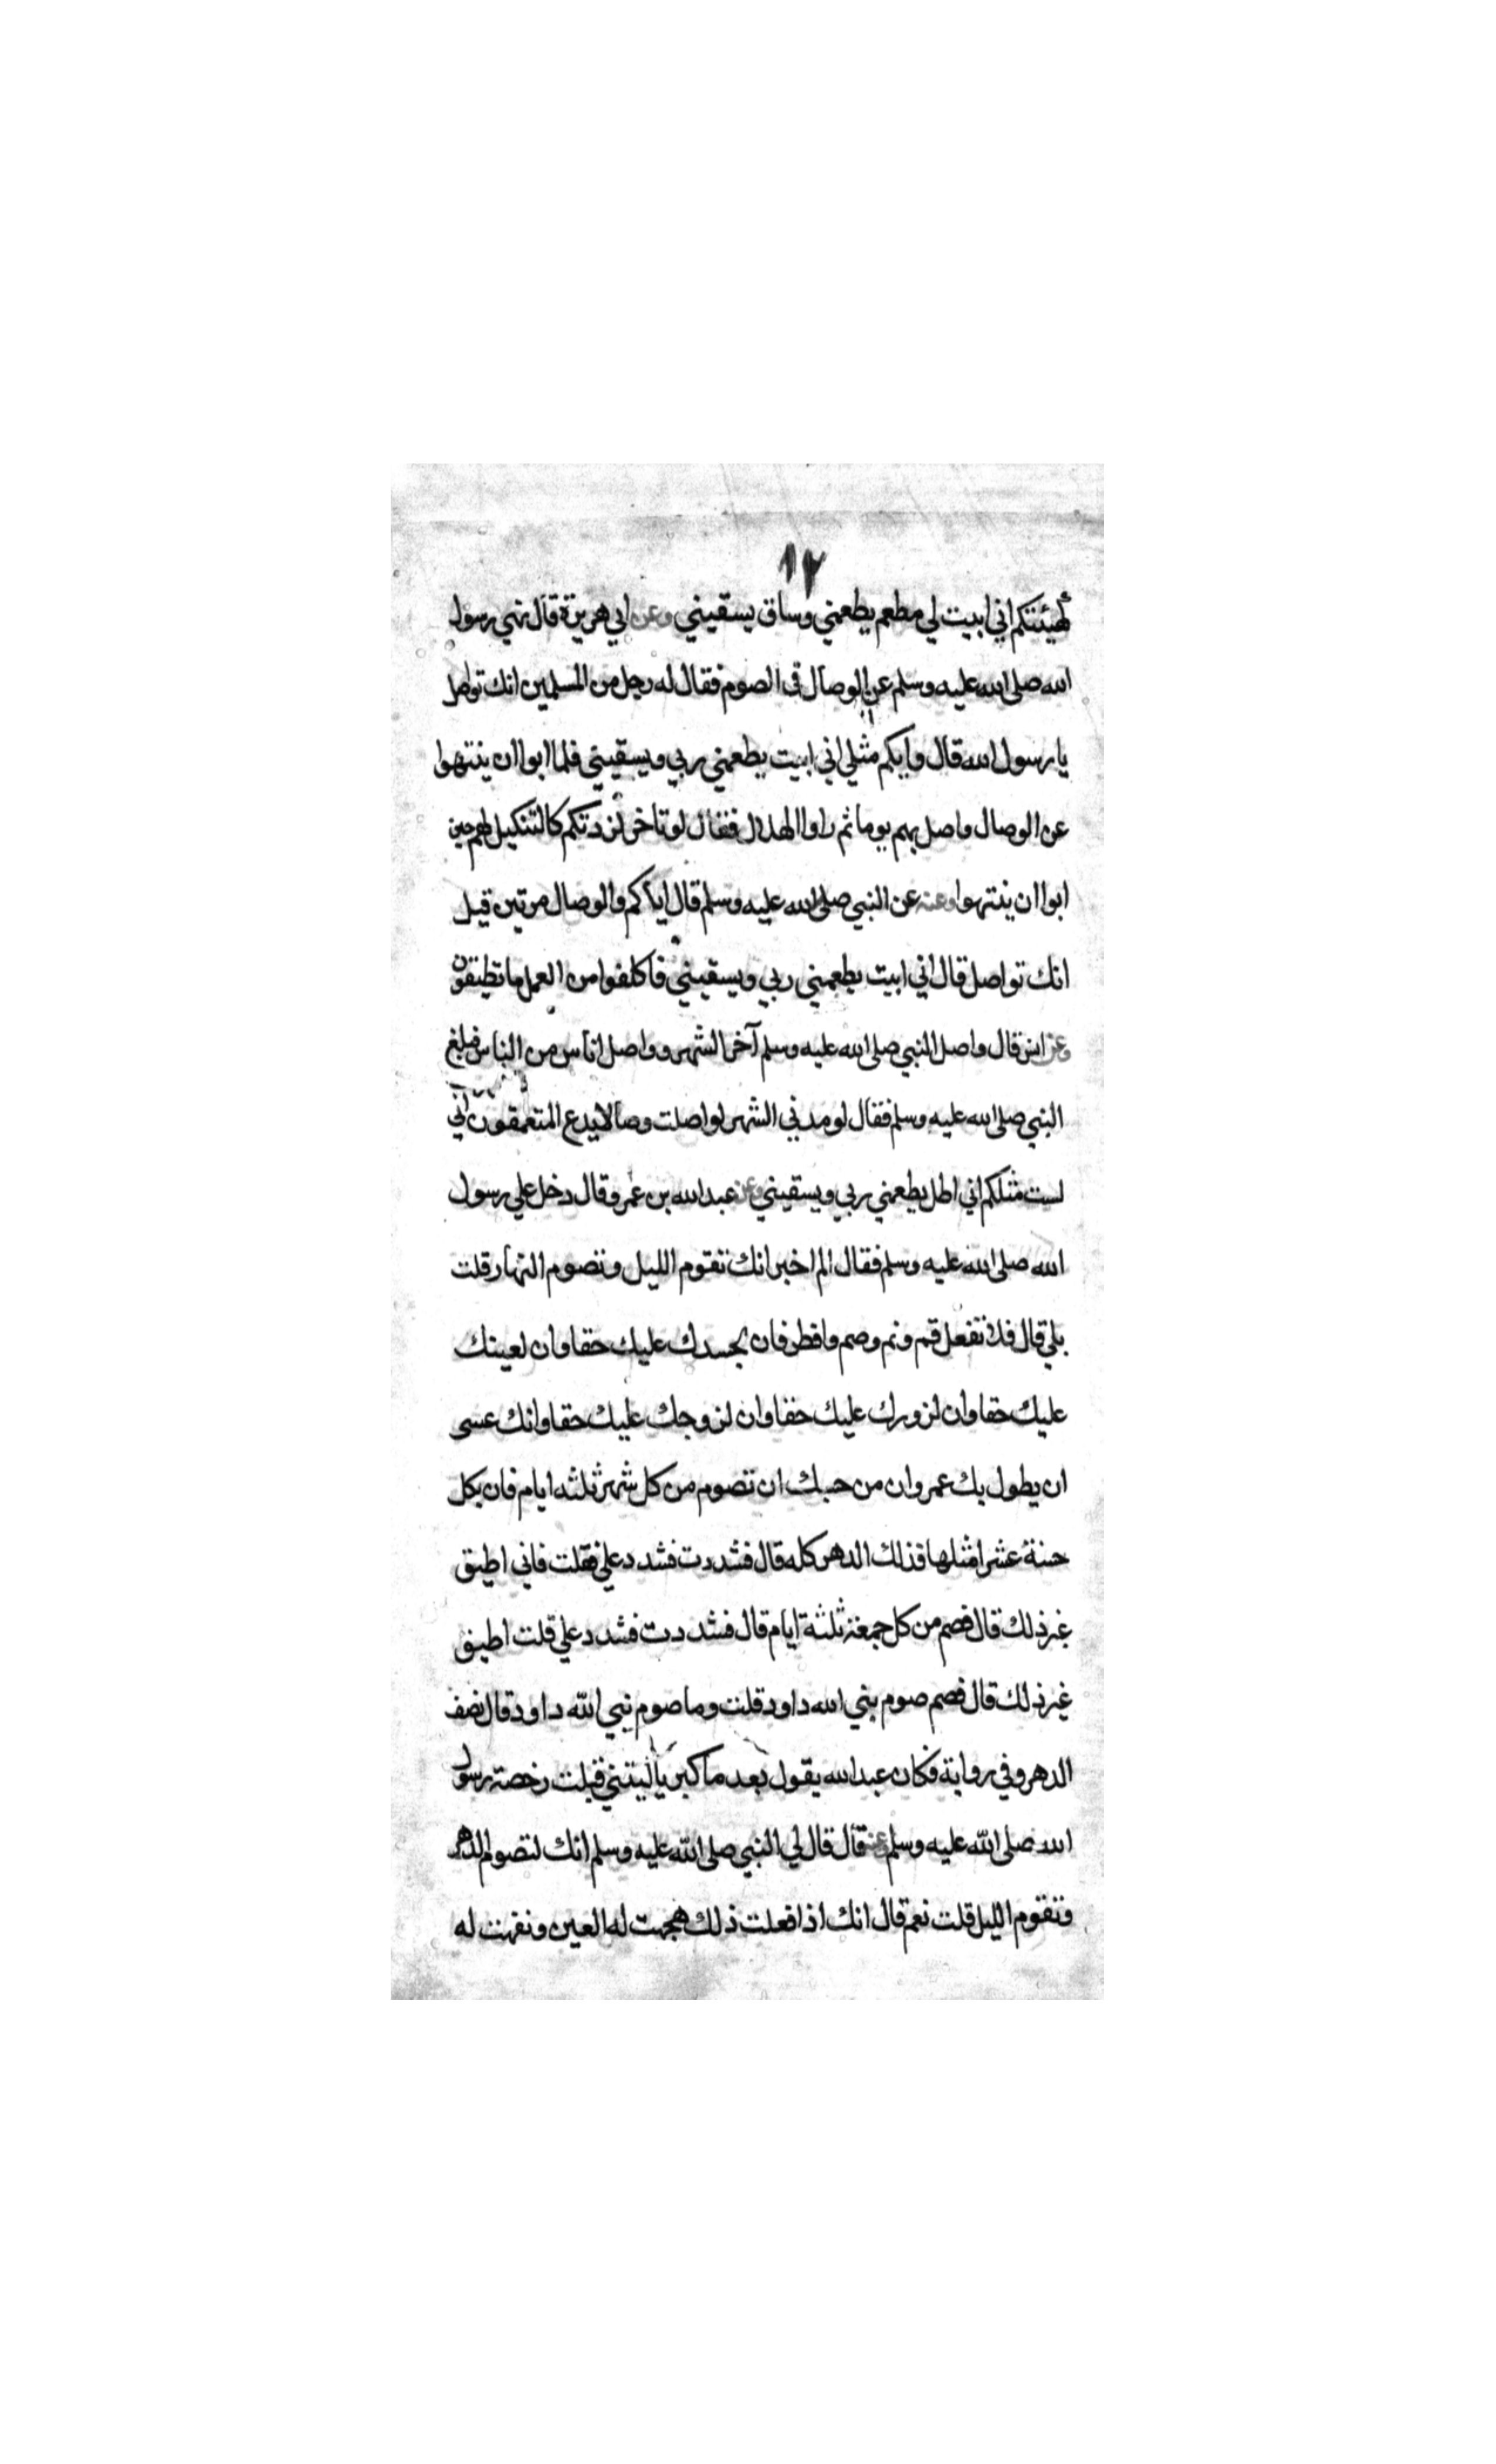 ١٢
كهيئتكم اني ابيت لي مطعم يطعمني وساق يسقيني وعن ابي هريرة قال نهى رسول
الله صلى الله عليه وسلم عن الوصال في الصوم فقال له رجل من المسلمين انك تواصل
يا رسول الله قال وايكم مثلي اني ابيت يطعمني ربي ويسقيني فلما ابوا ان ينتهوا
عن الوصال واصل بهم يوما ثم راوا الهلال فقال لو تاخر لزدتكم كالتنكيل لهم حين
ابوا ان ينتهوا وعنه عن النبي صلى الله عليه وسلم قال اياكم والوصال مرتين قيل
انك تواصل قال اني ابيت يطعمني ربي ويسقيني فاكلفوا من العمل ما تطيقون
وعن انس قال واصل النبي صلى الله عليه وسلم آخر الشهر وواصل اناس من الناس فبلغ
النبي صلى الله عليه وسلم فقال لو مد بي الشهر لواصلت وصالا يدع المتعمقون اني
لست مثلكم اني اظل يطعمني ربي ويسقيني وعن عبد الله بن عمرو قال دخل علي رسول
الله صلى الله عليه وسلم فقال الم اخبر انك تقوم الليل وتصوم النهار قلت
بلي قال فلا تفعل قم ونم وصم وافطر فان لجسدك عليك حقا وان لعينك
عليك حقا وان لزورك عليك حقا وان لزوجك عليك حقا وانك عسى
ان يطول بك عمر وان من حسبك ان تصوم من كل شهر ثلثه ايام فان بكل
حسنة عشر امثلها فذلك الدهر كله قال فشددت فشدد علي فقلت فاني اطيق
غير ذلك قال فصم من كل جمعة ثلثة ايام قال فشددت فشدد علي قلت اطيق
غير ذلك قال فصم صوم نبي الله داود قلت وما صوم نبي الله داود قال نصف
الدهر وفي رواية فكان عبد الله يقول بعد ما كبر يا ليتني قبلت رخصة رسول
الله صلى الله عليه وسلم وعنه قال قال لي النبي صلى الله عليه وسلم انك لتصوم الدهر
وتقوم الليل قلت نعم قال انك اذا فعلت ذلك هجمت له العين ونفهت له